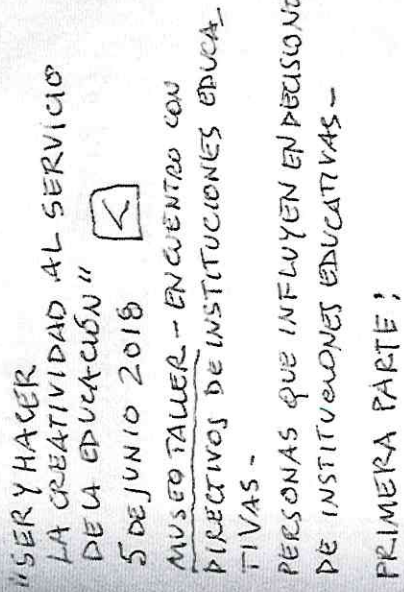 "SER Y HACER
LA CREATIVIDAD AL SERVICIO
DE LA EDUCACIÓN"
5 DE JUNIO 2018
MUSEO TALLER - ENCUENTRO CON
DIRECTIVOS DE INSTITUCIONES EDUCA_
TIVAS -
PERSONAS QUE INFLUYEN EN DECISIONE
DE INSTITUCIONES EDUCATIVAS -
PRIMERA PARTE: